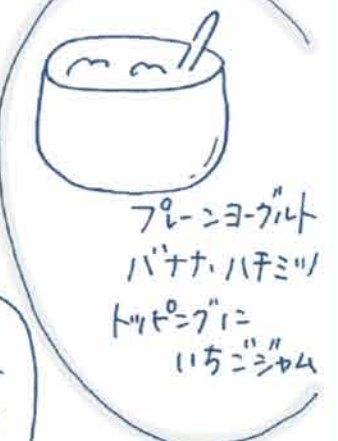 プレーンヨーグルト
バナナ、ハチミツ
トッピングに
いちごジャム